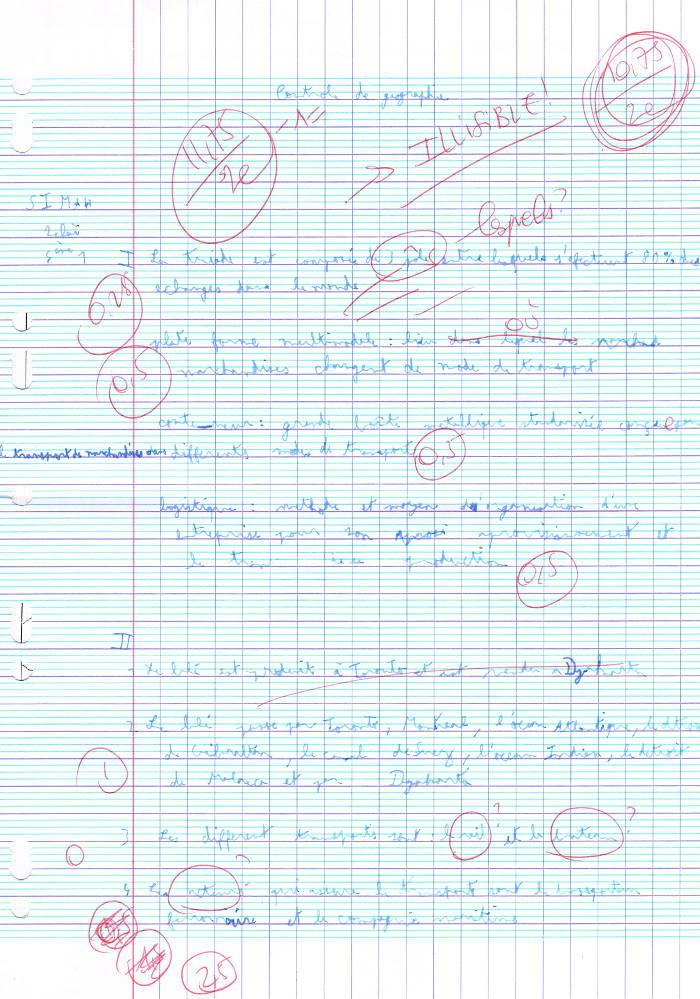 Controle de geographie
10,75
20
11,75
20
- 1 =
ILLISIBLE!
lesquels?
SIMAH
I La triade est composée de 3 pôles entre lesquels s'effectuent 80% des
echanges dans le monde
0,25
où
plate forme multimodale : lieu dans lequel les
marchandises changent de mode de transport
0,5
conteneur : grande boîte metallique standarisée conçue pour
le transport de marchandises dans differents modes de transport
0,5
logistique : methode et moyen d'organisation d'une
entreprise pour son aprovisionnement et
le production
0,5
II
1 Le blé est produit à Toronto et est vendu a Djakarta
2 Le blé passe par Toronto, Montréal, l'ocean Atlantique, le detroit
de Gibraltar, le canal de Suez, l'ocean Indien, le detroit
de Malacca et par Djakarta
1
3 Les different transports sont : le rail ? et le bateau ?
0
4 Les acteurs ? qui assure le transports sont la navigation
ferroviaire et la compagnie maritime
2,5